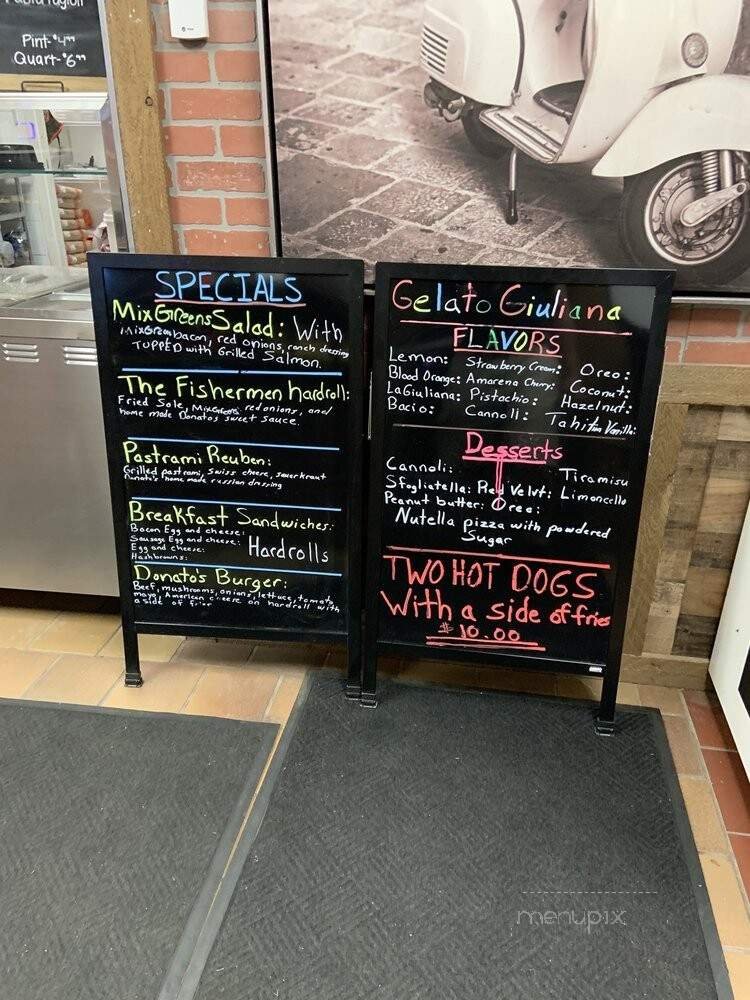 Pint-$4.99
Quart-$6.99
SPECIALS
Mix Greens Salad: With
Mix Green bacon, red onions, ranch dressing
TOPPED with Grilled Salmon.
The Fishermen hardroll:
Fried Sole, Mix Greens, red onions, and
home made Donatos sweet sauce.
Pastrami Reuben:
Grilled pastrami, Swiss cheese, sauerkraut
home made russian dressing
Breakfast Sandwiches:
Bacon Egg and cheese:
Sausage Egg and cheese:
Egg and cheese:
Hashbrowns:
Hardrolls
Donato's Burger:
Beef, mushrooms, onions, lettuce, tomato,
mayo, American cheese on hardroll with
a side of fries
Gelato Giuliana
FLAVORS
Lemon: Strawberry Cream: Oreo:
Blood Orange: Amarena Cherry: Coconut:
LaGiuliana: Pistachio: Hazelnut:
Bacio: Cannoli: Tahitian Vanilla:
Desserts
Cannoli: Tiramisu
Sfogliatella: Red Velvt: Limoncello
Peanut butter: Oreo:
Nutella pizza with powdered
Sugar
TWO HOT DOGS
With a side of fries
$10.00
menupix